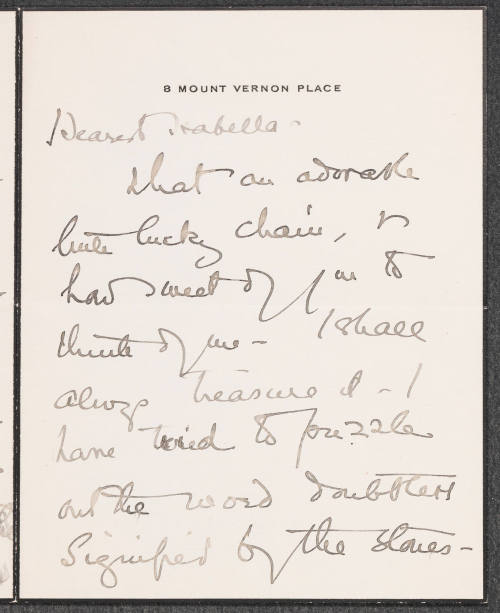 8 MOUNT VERNON PLACE
Dearest Isabella -
What an adorable
little lucky chain, &
how sweet of you to
think of me - I shall
always treasure it - I
have tried to puzzle
out the word doubtless
signified by the stones -